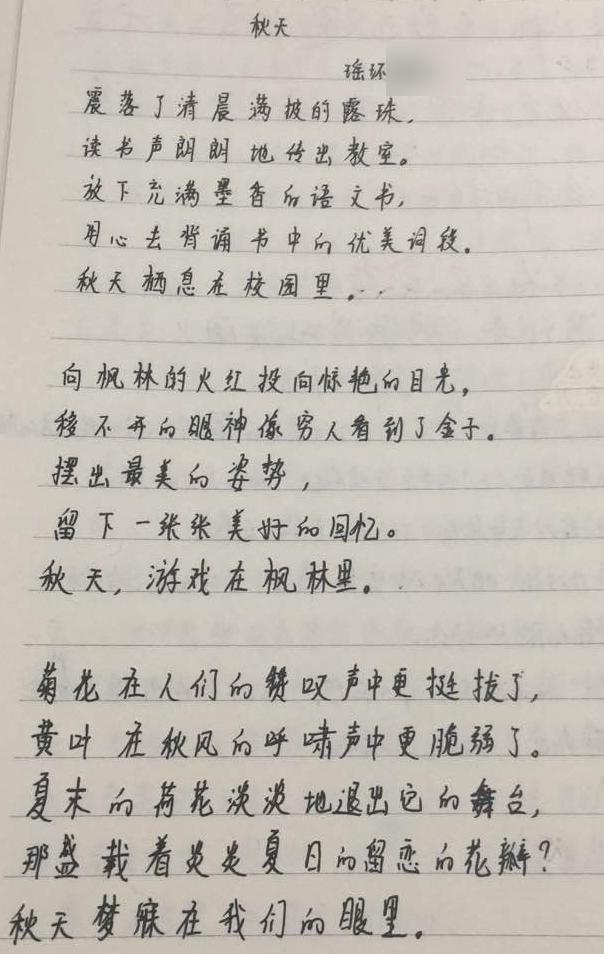 秋天
瑶环
震落了清晨满披的露珠,
读书声朗朗地传出教室。
放下充满墨香的语文书,
用心去背诵书中的优美词段。
秋天栖息在校园里...
向枫林的火红投向惊艳的目光,
移不开的眼神像穷人看到了金子。
摆出最美的姿势,
留下一张张美好的回忆。
秋天,游戏在枫林里。
菊花在人们的赞叹声中更挺拔了,
黄叶在秋风的呼啸声中更脆弱了。
夏末的荷花淡淡地退出它的舞台,
那盛载着炎炎夏日的留恋的花瓣?
秋天梦寐在我们的眼里。